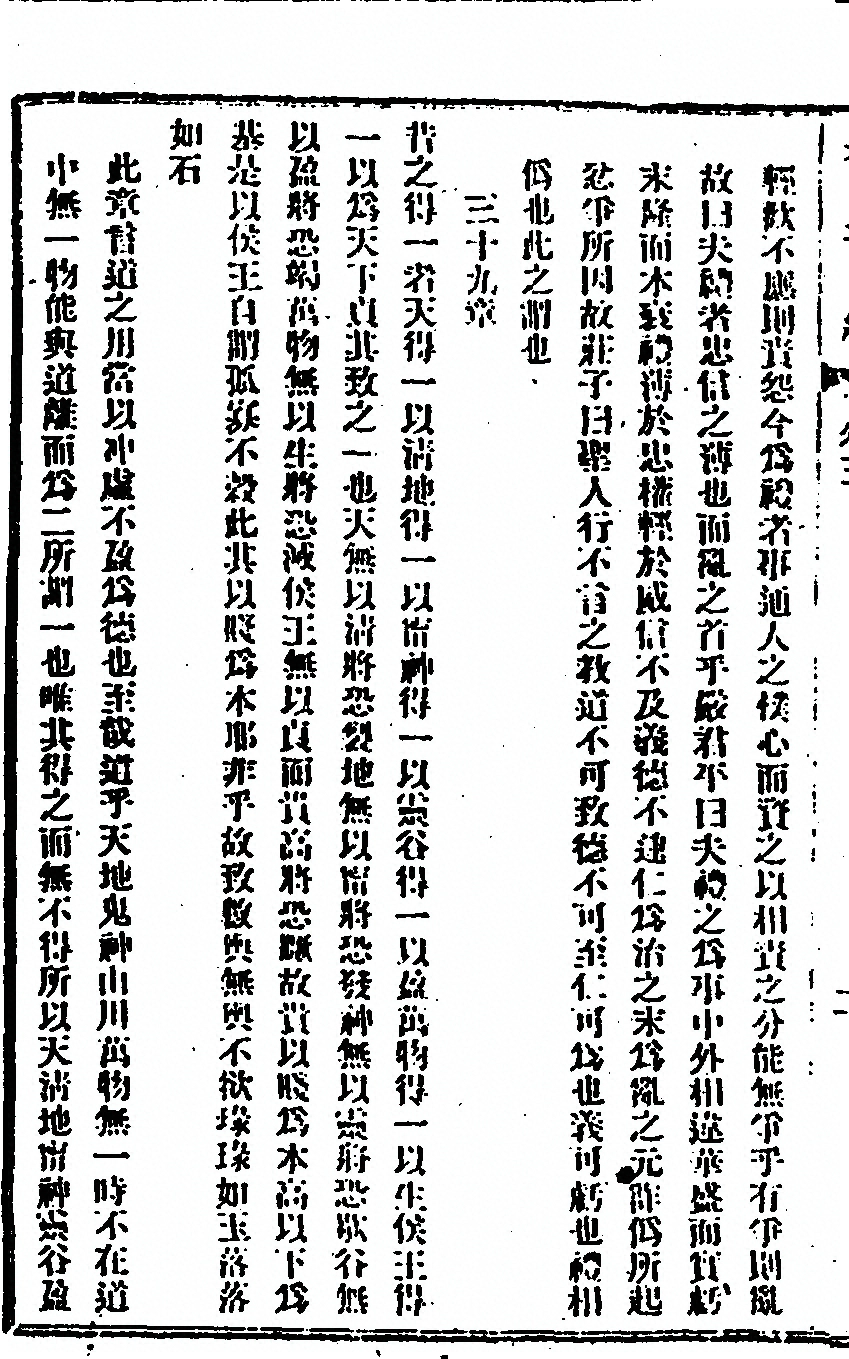 輕歛不應則責怨今爲禮者事通人之快心而責之以相責之分能無爭乎有爭則亂
故曰夫禮者忠信之薄也而亂之首乎嚴君平曰夫禮之爲事中外相違華盛而實虧
末隆而本衰禮薄於忠權輕於威信不及義德不逮仁爲治之末爲亂之元詐僞所起
忿爭所因故莊子曰聖人行不言之教道不可致德不可至仁可爲也義可虧也禮相
僞也此之謂也
三十九章
昔之得一者天得一以淸地得一以甯神得一以靈谷得一以盈萬物得一以生侯王得
一以爲天下貞其致之一也天無以淸將恐裂地無以甯將恐發神無以靈將恐歇谷無
以盈將恐竭萬物無以生將恐滅侯王無以貞而貴高將恐蹶故貴以賤爲本高以下爲
基是以侯王自謂孤寡不穀此其以賤爲本耶非乎故致數輿無輿不欲琭琭如玉落落
如石
此章言道之用當以沖虛不盈爲德也至哉道乎天地鬼神山川萬物無一時不在道
中無一物能與道離而爲二所謂一也唯其得之而無不得所以天淸地甯神靈谷盈